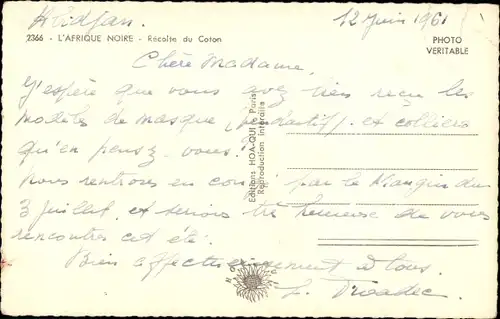 Abidjan.
12 Juin 1961
2366 - L'AFRIQUE NOIRE - Récolte du Coton
PHOTO
VERITABLE
Chère Madame.
J'espère que vous avez bien reçu les
modèles de masque, pendentif et colliers
qu'en pensez-vous?
Nous rentrons en par le Mangin du
3 juillet, et serions très heureuse de vous
rencontrer cet été.
Bien affectueusement à tous.
L. Troadec
Editions HOA-QUI Paris
Reproduction interdite